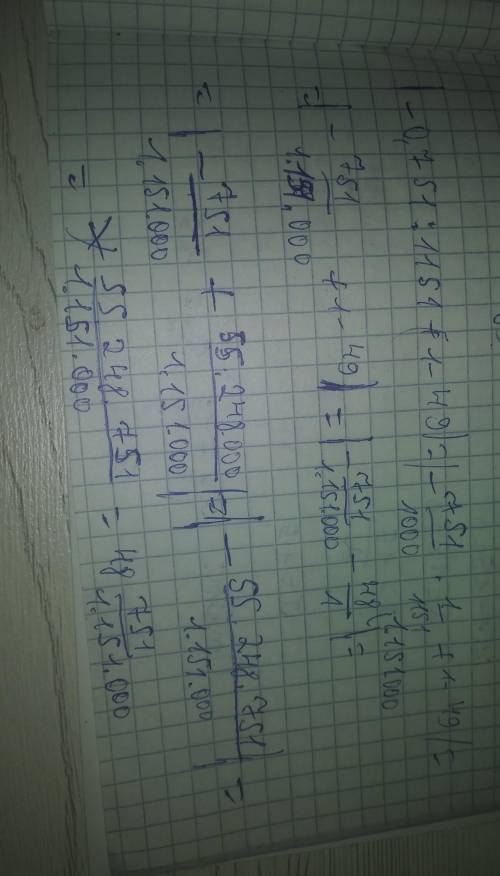 |-0,751:1151+1-49|=|-751/1000·1/1151+1-49|=
=|-751/1.151.000+1-49|=|-751/1.151.000-48/1|=
=|-751/1.151.000+55.248.000/1.151.000|=|-55.248.751/1.151.000|=
=55248751/1.151.000=48 751/1.151.000